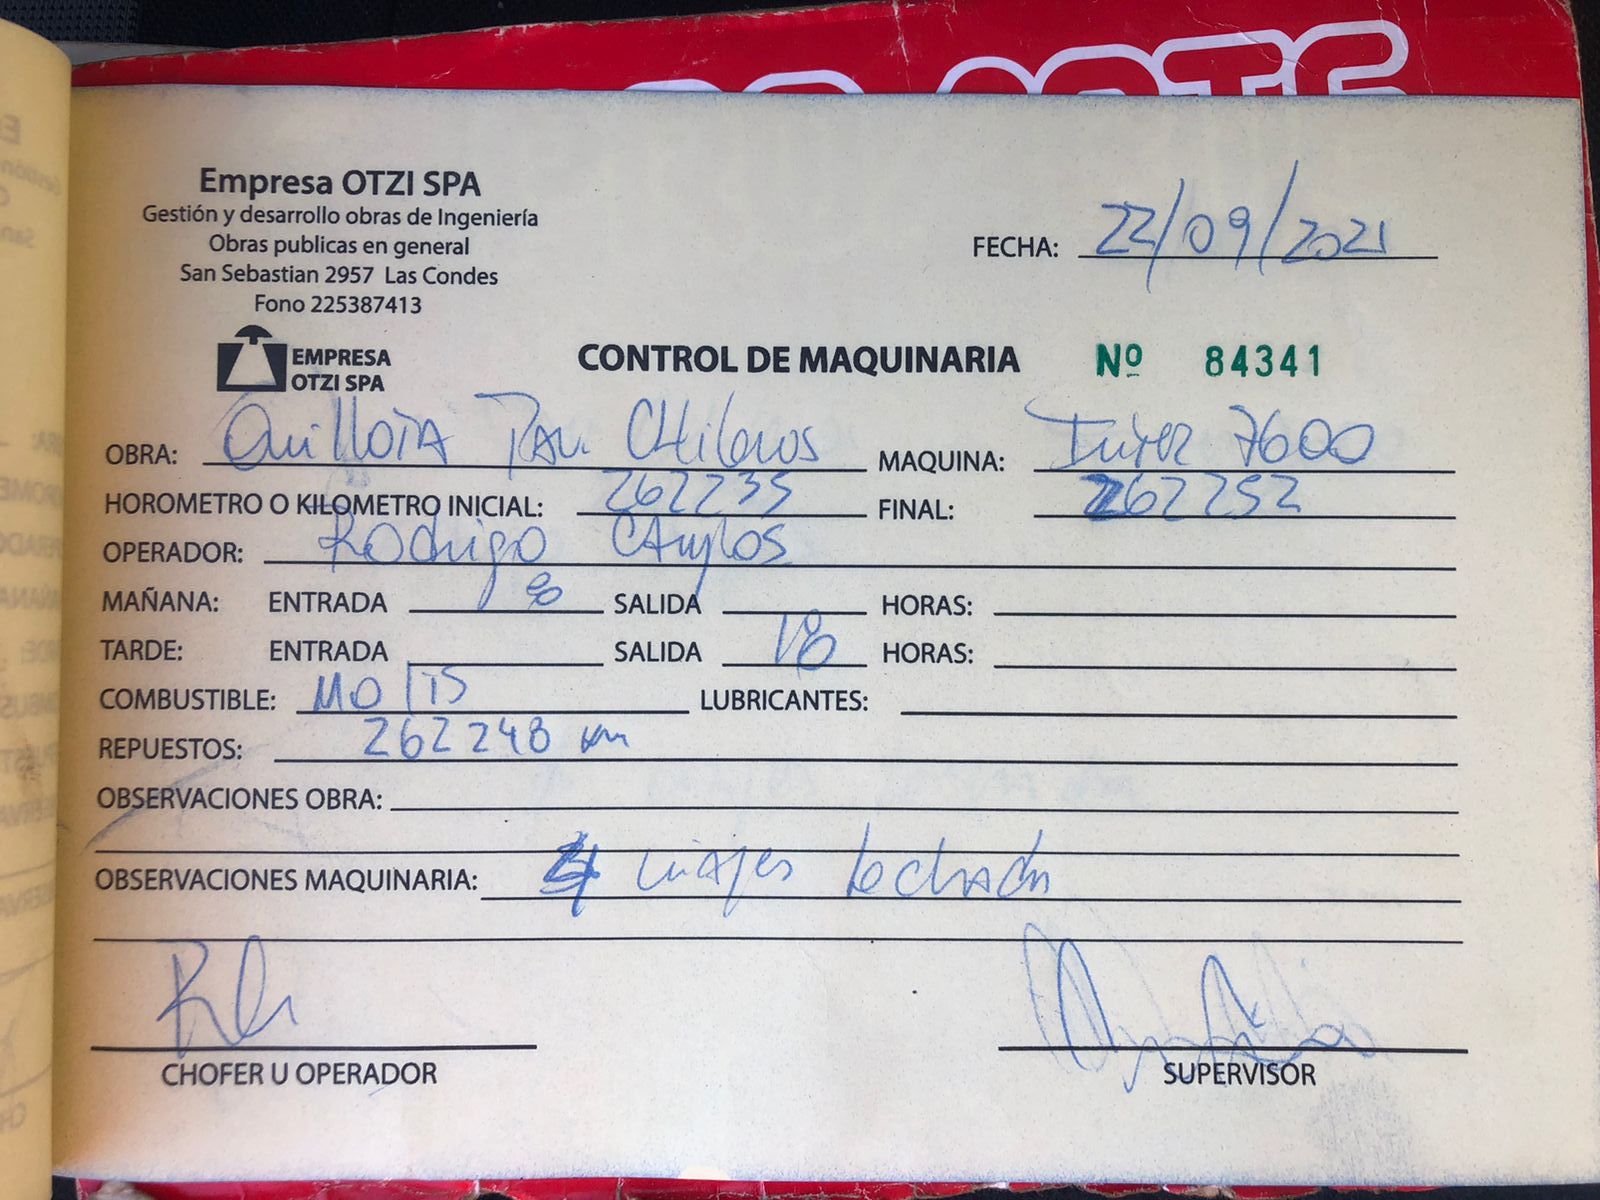 Empresa OTZI SPA
Gestión y desarrollo obras de Ingeniería
Obras publicas en general
San Sebastian 2957 Las Condes
Fono 225387413
FECHA: 22/09/2021
EMPRESA
OTZI SPA
CONTROL DE MAQUINARIA Nº 84341
OBRA: Quillota Pav. CHilenos MAQUINA: Inter 7600
HOROMETRO O KILOMETRO INICIAL: 262235 FINAL: 262252
OPERADOR: Rodrigo
MAÑANA: ENTRADA 8 SALIDA HORAS:
TARDE: ENTRADA SALIDA 18 HORAS:
COMBUSTIBLE: LUBRICANTES:
REPUESTOS: 262248 km
OBSERVACIONES OBRA:
OBSERVACIONES MAQUINARIA: 4 viajes lechada
CHOFER U OPERADOR
SUPERVISOR